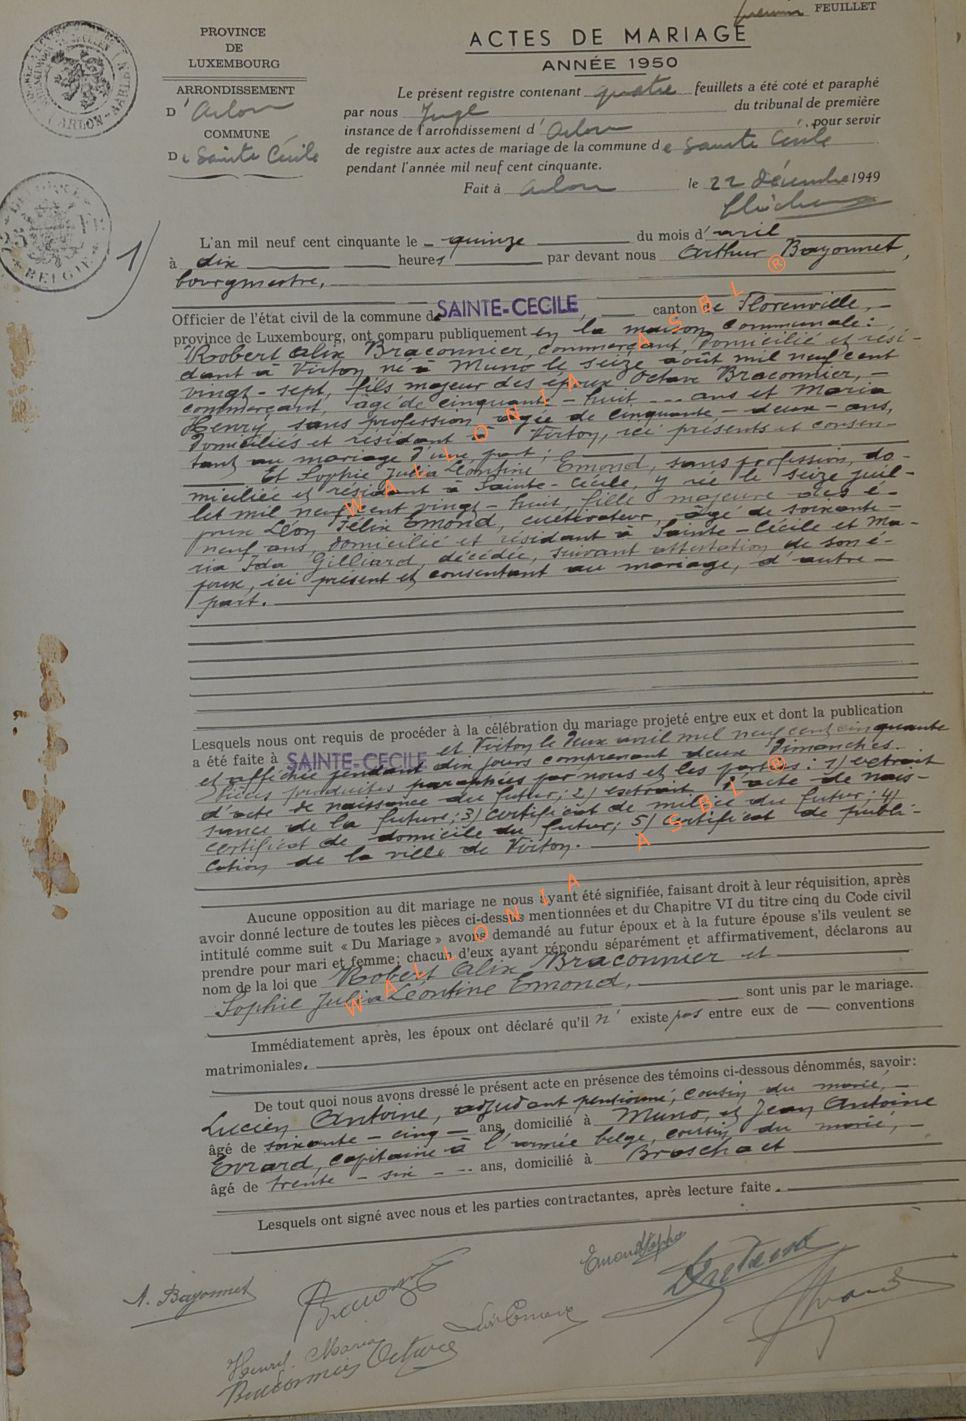 premier FEUILLET
PROVINCE
DE
LUXEMBOURG
ARRONDISSEMENT
D'Arlon
COMMUNE
De Sainte Cécile
ACTES DE MARIAGE
ANNÉE 1950
Le présent registre contenant quatre feuillets a été coté et paraphé
par nous Juge du tribunal de première
instance de l'arrondissement d'Arlon, pour servir
de registre aux actes de mariage de la commune de Sainte Cécile
pendant l'année mil neuf cent cinquante.
Fait à Arlon le 22 décembre 1949
1/
L'an mil neuf cent cinquante le quinze du mois d'avril
à dix heures par devant nous Arthur Bayonnet,
bourgmestre,
Officier de l'état civil de la commune de SAINTE-CECILE, canton de Florenville,
province de Luxembourg, ont comparu publiquement en la maison communale:
Robert Alix Braconnier, commerçant, domicilié et rési-
dant à Virton, né à Muno le seize août mil neuf cent
vingt-sept, fils majeur des époux Octave Braconnier,
commerçant, âgé de cinquante-huit ans et Maria
Henry, sans profession âgée de cinquante-deux-ans,
domiciliés et résidant à Virton, ici présents et consen-
tant au mariage d'une part;
Et Sophie Julia Léontine Emond, sans profession, do-
miciliée et résidant à Sainte-Cécile, y née le seize juil-
let mil neuf cent vingt-huit, fille majeure des é-
poux Léon Félix Emond, cultivateur, âgé de soixante-
neuf ans, domicilié et résidant à Sainte-Cécile et Ma-
ria Ida Gilliard, décédée, suivant attestation de son é-
poux, ici présent et consentant au mariage, d'autre
part.
Lesquels nous ont requis de procéder à la célébration du mariage projeté entre eux et dont la publication
a été faite à SAINTE-CECILE et Virton le deux avril mil neuf cent cinquante
et affichée pendant dix jours comprenant deux dimanches.
Pièces produites paraphées par nous et les parties: 1) extrait
d'acte de naissance du futur; 2) extrait d'acte de nais-
sance de la future; 3) certificat de milice du futur; 4)
certificat de domicile du futur; 5) certificat de publi-
cation de la ville de Virton.
Aucune opposition au dit mariage ne nous ayant été signifiée, faisant droit à leur réquisition, après
avoir donné lecture de toutes les pièces ci-dessus mentionnées et du Chapitre VI du titre cinq du Code civil
intitulé comme suit « Du Mariage » avons demandé au futur époux et à la future épouse s'ils veulent se
prendre pour mari et femme; chacun d'eux ayant répondu séparément et affirmativement, déclarons au
nom de la loi que Robert Alix Braconnier et
Sophie Julia Léontine Emond, sont unis par le mariage.
Immédiatement après, les époux ont déclaré qu'il n'existe pas entre eux de conventions
matrimoniales.
De tout quoi nous avons dressé le présent acte en présence des témoins ci-dessous dénommés, savoir:
Lucien Antoine, adjudant pensionné, cousin du marié,
âgé de soixante-cinq ans, domicilié à Muno, et Jean Antoine
Evrard, capitaine à l'armée belge, cousin du marié,
âgé de trente-six ans, domicilié à Braschaet
Lesquels ont signé avec nous et les parties contractantes, après lecture faite.
A. Bayonnet
Emond Sophie
Henry Maria
Braconnier Octave
WALLONIA ASBL ®
WALLONIA ASBL ®